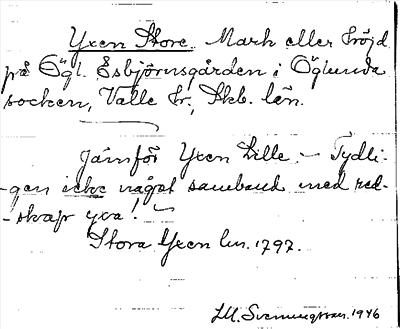 Yxen Store. Mark eller höjd
på Ögl. Esbjörnsgården i Öglunda
socken, Valle hr., Skb. län.
Jämför Yxen Lille. — Tydli-
-gen icke något samband med red-
-skap yxa!
Stora Yxen lm. 1797.
J.M. Svenungsson. 1946